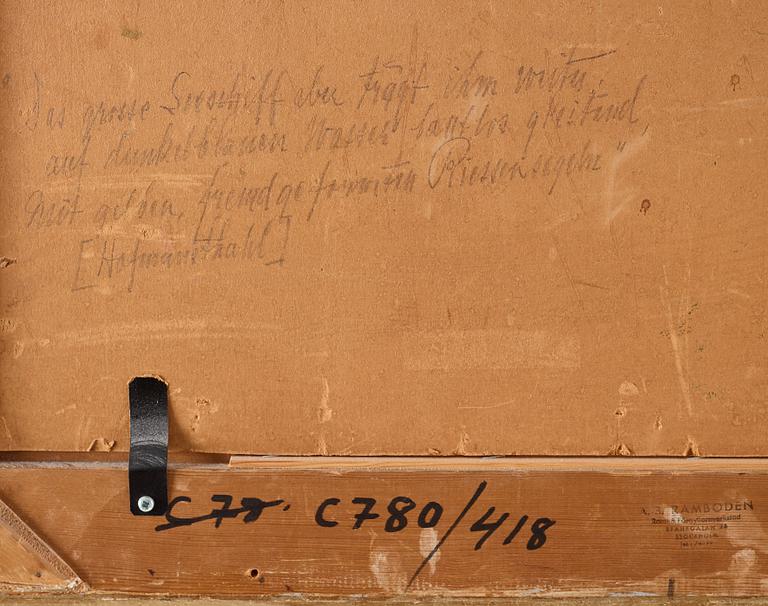 "Das grosse Seeschiff aber trägt ihm weiter.
auf dunkelblauen Wasser lautlos gleitend,
Mit gelben, fremdgeformten Riesensegeln"
[Hofmansthahl]
C78. C780/418
A.B. RAMBODEN
Ram & Förgyllareverkstad
STOCKHOLM